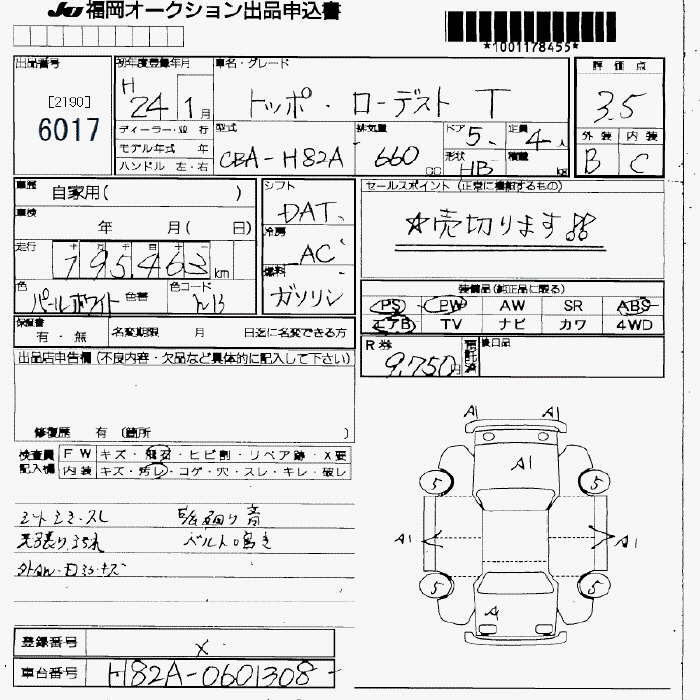 JU 福岡オークション出品申込書
*1001178455*
出品番号 [2190] 6017
初年度登録年月 H 24 1月
車名・グレード トッポ・ローデスト T
評価点 3.5
外装 B 内装 C
ディーラー・並行
モデル年式 年
ハンドル 左・右
型式 CBA-H82A
排気量 660 CC
ドア 5
定員 4人
形状 HB
積載 kg
車歴 自家用( )
車検 年 月( 日)
走行 195,463 km
色 パールホワイト 色替 色コード
シフト DAT
冷房 AC
燃料 ガソリン
セールスポイント (正常に機能するもの)
☆売切ります!!
装備品(純正品に限る)
PS PW AW SR ABS
エアB TV ナビ カワ 4WD
保証書 有・無 名変期限 月 日迄に名変できる方
R券 9,750円 預託済 後日品
出品店申告欄 (不良内容・欠品など具体的に記入して下さい)
修復歴 有 (箇所 )
検査員記入欄
FW キズ・飛石・ヒビ割・リペア跡・X要
内装 キズ・汚レ・コゲ・穴・スレ・キレ・破レ
シートシミ・スレ
天張り汚れ
ベルト鳴き
A1 A1
A1
5 5
A1 A1
5 5
A
登録番号 X
車台番号 H82A-0601308